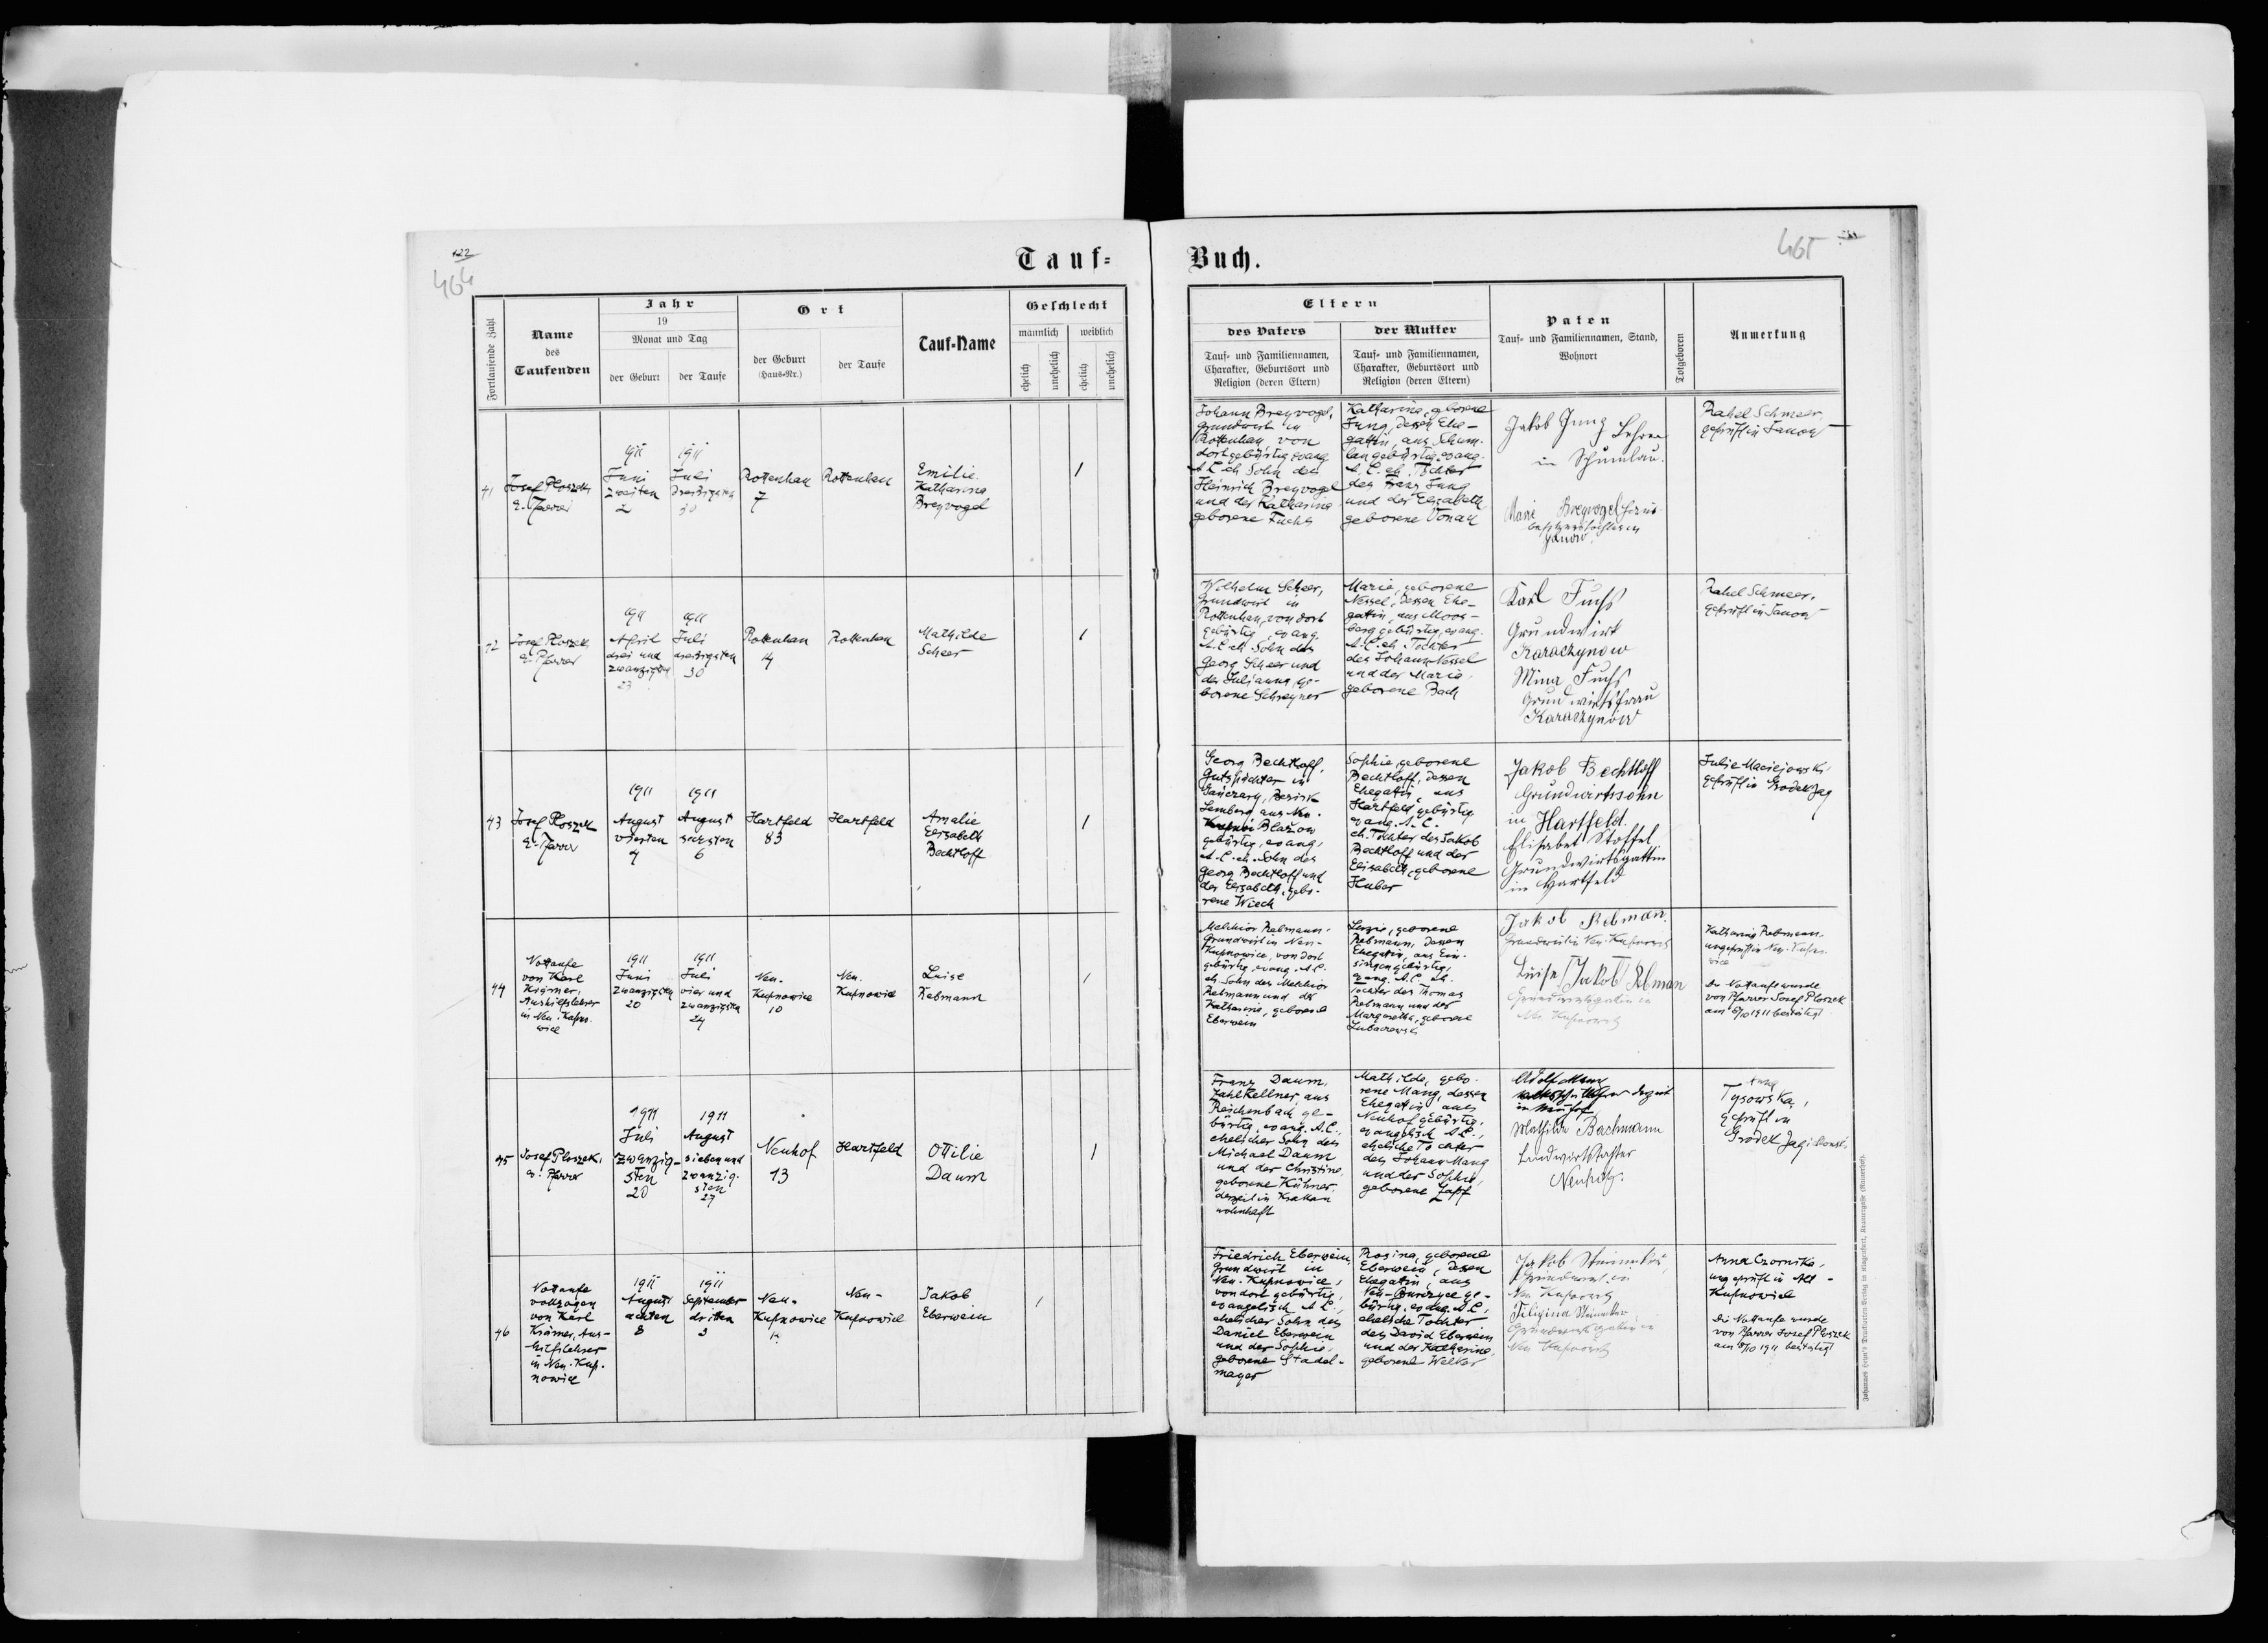 122
464
Tauf-
Buch.
465
Fortlaufende Zahl
Name
des
Taufenden
Jahr
19
Monat und Tag
der Geburt
der Taufe
Ort
der Geburt
(Haus-Nr.)
der Taufe
Tauf-Name
Geschlecht
männlich
weiblich
ehelich
unehelich
ehelich
unehelich
Eltern
des Vaters
Tauf- und Familiennamen,
Charakter, Geburtsort und
Religion (deren Eltern)
der Mutter
Tauf- und Familiennamen,
Charakter, Geburtsort und
Religion (deren Eltern)
Paten
Tauf- und Familiennamen, Stand,
Wohnort
Totgeboren
Anmerkung
41
Josef Ploszek
E. Pfarrer
1911
Juni
zweiten
2
1911
Juli
dreißigsten
30
Rottenhan
7
Rottenhan
Emilie
Katharina
Breyvogel
1
Johann Breyvogel,
Grundwirt in
Rottenhan, von
dort gebürtig evang.
A. C. eh. Sohn des
Heinrich Breyvogel
und der Katharina
geborene Fuchs
Katharina, geborene
Jung, dessen Ehe-
gattin, aus Schum-
lau gebürtig, evang.
A. C. eh. Tochter
des Franz Jung
und der Elisabeth
geborene Donau
Jakob Jung Lehrer
in Schumlau.
Marie Breyvogel
Janow.
Rahel Schmeer,
geprüft in Janow
42
Josef Ploszek
E. Pfarrer
1911
April
drei und
zwanzigsten
23
1911
Juli
dreißigsten
30
Rottenhan
14
Rottenhan
Mathilde
Scheer
1
Wilhelm Scheer,
Grundwirt in
Rottenhan, von dort
gebürtig, evang.
A. C. eh. Sohn des
Georg Scheer und
der Julianna, ge-
borene Schreyner
Maria, geborene
Nessel, dessen Ehe-
gattin, aus Moos-
berg gebürtig, evang.
A. C. eh. Tochter
des Johann Nessel
und der Maria,
geborene Bach
Karl Fuchs
Grundwirt
Karaczynow
Mina Fuchs
Grundwirtsfrau
Karaczynów
Rahel Schmeer,
geprüft in Janow
43
Josef Ploszek
E. Pfarrer
1911
August
vierten
4
1911
August
sechsten
6
Hartfeld
83
Hartfeld
Amalie
Elisabeth
Bechtloff
1
Georg Bechtloff,
Gutspächter in
Gańczary, Bezirk
Lemberg, aus Neu-
Blażow
gebürtig, evang.
A. C. eh. Sohn des
Georg Bechtloff und
der Elisabeth, gebo-
rene Wiech
Sophie, geborene
Bechtloff, dessen
Ehegattin, aus
Hartfeld gebürtig
evang. A. C.
eh. Tochter des Jakob
Bechtloff und der
Elisabeth, geborene
Huber
Jakob Bechtloff
Grundwirtssohn
in Hartfeld.
Elisabet Stoffel
Grundwirtsgattin
in Hartfeld
Julie Maciejowski
geprüft in Grodek Jag
44
Nottaufe
von Karl
Krämer,
Aushilfslehrer
in Neu-Kupno-
wice
1911
Juni
zwanzigsten
20
1911
Juli
vier und
zwanzigsten
24
Neu-
Kupnowice
10
Neu-
Kupnowice
Luise
Rebmann
1
Melchior Rebmann,
Grundwirt in Neu-
Kupnowice, von dort
gebürtig, evang. A. C.
eh. Sohn des Melchior
Rebmann und der
Katharina, geborene
Eberwein
geborene
Rebmann, dessen
Ehegattin, aus Ein-
singen gebürtig,
evang. A. C. eh.
Tochter des Thomas
Rebmann und der
Margaretha, geborene
Jakob Rebman
Grundwirt in Neu-Kupnowice
Luise Jakob Rebman
Katharina Rebmann
ungeprüft in Neu-Kupno-
wice
Die Nottaufe wurde
von Pfarrer Josef Ploszek
am 8/10 1911 bestätigt
45
Josef Ploszek,
ev. Pfarrer
1911
Juli
zwanzig-
sten
20
1911
August
sieben und
zwanzig-
sten
27
Neuhof
13
Hartfeld
Ottilie
Daum
1
Franz Daum,
Zahlkellner, aus
Reichenbach ge-
bürtig, evang. A. C.,
ehelicher Sohn des
Michael Daum
und der Christine,
geborene Kühner,
derzeit in Krakau
wohnhaft
Mathilde, gebo-
rene Mang, dessen
Ehegattin aus
Neuhof gebürtig,
evangelisch A. C.,
eheliche Tochter
des Johann Mang
und der Sophie,
geborene Zapf
Adolf Mang
in Neuhof
Mathilde Bachmann
Landwirtstochter
Neuhof.
Anna
Tysowska,
geprüft in
Grodek Jagiellonski.
46
Nottaufe
vollzogen
von Karl
Krämer, Aus-
hilfslehrer
in Neu-Kup-
nowice
1911
August
achten
8
1911
September
dritten
3
Neu-
Kupnowice
Neu-
Kupnowice
Jakob
Eberwein
1
Friedrich Eberwein,
Grundwirt in
Neu-Kupnowice,
von dort gebürtig,
evangelisch A. C.,
ehelicher Sohn des
Daniel Eberwein
und der Sophie,
geborene Stadel-
mayer
Rosina, geborene
Eberwein, dessen
Ehegattin, aus
Neu-Burczyce ge-
bürtig, evang. A. C.,
eheliche Tochter
des David Eberwein
und der Katharina,
geborene Welker
Jakob
Grundwirt in
Neu Kupnowice
Neu Kupnowice
Anna Czornika,
ungeprüft in Alt-
Kupnowice
Die Nottaufe wurde
von Pfarrer Josef Ploszek
am 8/10 1911 bestätigt